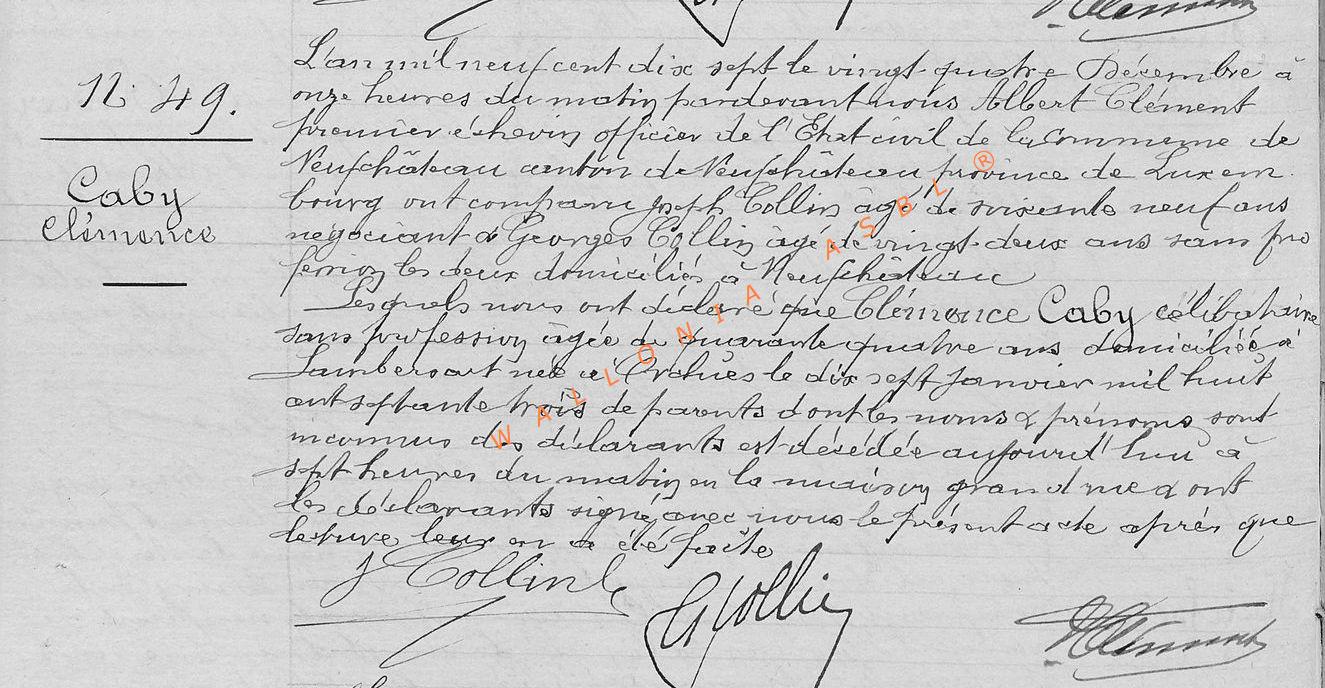 N. 49.
Caby
Clémence
L'an mil neuf cent dix sept le vingt-quatre Décembre à
onze heures du matin pardevant nous Albert Clément
premier échevin officier de l'Etat civil de la commune de
Neufchâteau canton de Neufchâteau province de Luxem
bourg ont comparu Joseph Collin âgé de soixante neuf ans
négociant & Georges Collin âgé de vingt-deux ans sans pro
fession les deux domiciliés à Neufchâteau
Lesquels nous ont déclaré que Clémence Caby célibataire
sans profession âgée de quarante quatre ans domiciliée à
Lambersart née à Orchies le dix sept Janvier mil huit
cent septante trois de parents dont les noms & prénoms sont
inconnus des déclarants est décédée aujourd'hui à
sept heures du matin en la maison grand rue & ont
les déclarants signé avec nous le présent acte après que
lecture leur en a été faite
J Collin
G Collin
A Clément
WALLONIA ASBL ®